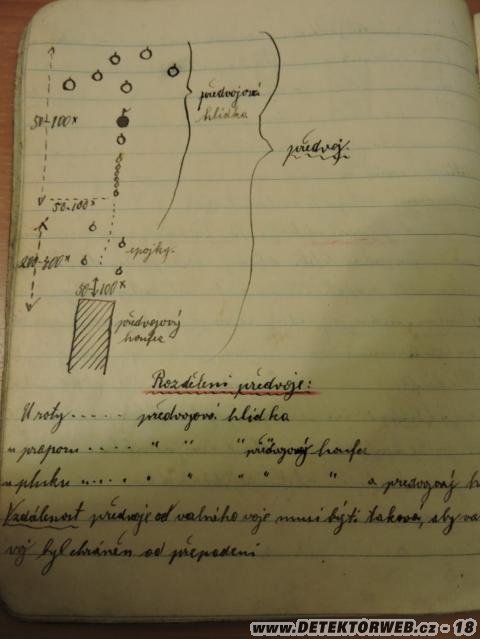 50-100x
předvojová
hlídka
předvoj.
50-100x
200-400x
spojky.
50 100x
předvojový
houfec
Rozdělení předvoje:
U roty ..... předvojová hlídka
u praporu .... " " " předvojový houfec
u pluku ...... " " " " " a předvojový h
Vzdálenost předvoje od valného voje musí býti taková, aby va
voj byl chráněn od přepadení
www.DETEKTORWEB.cz - 18